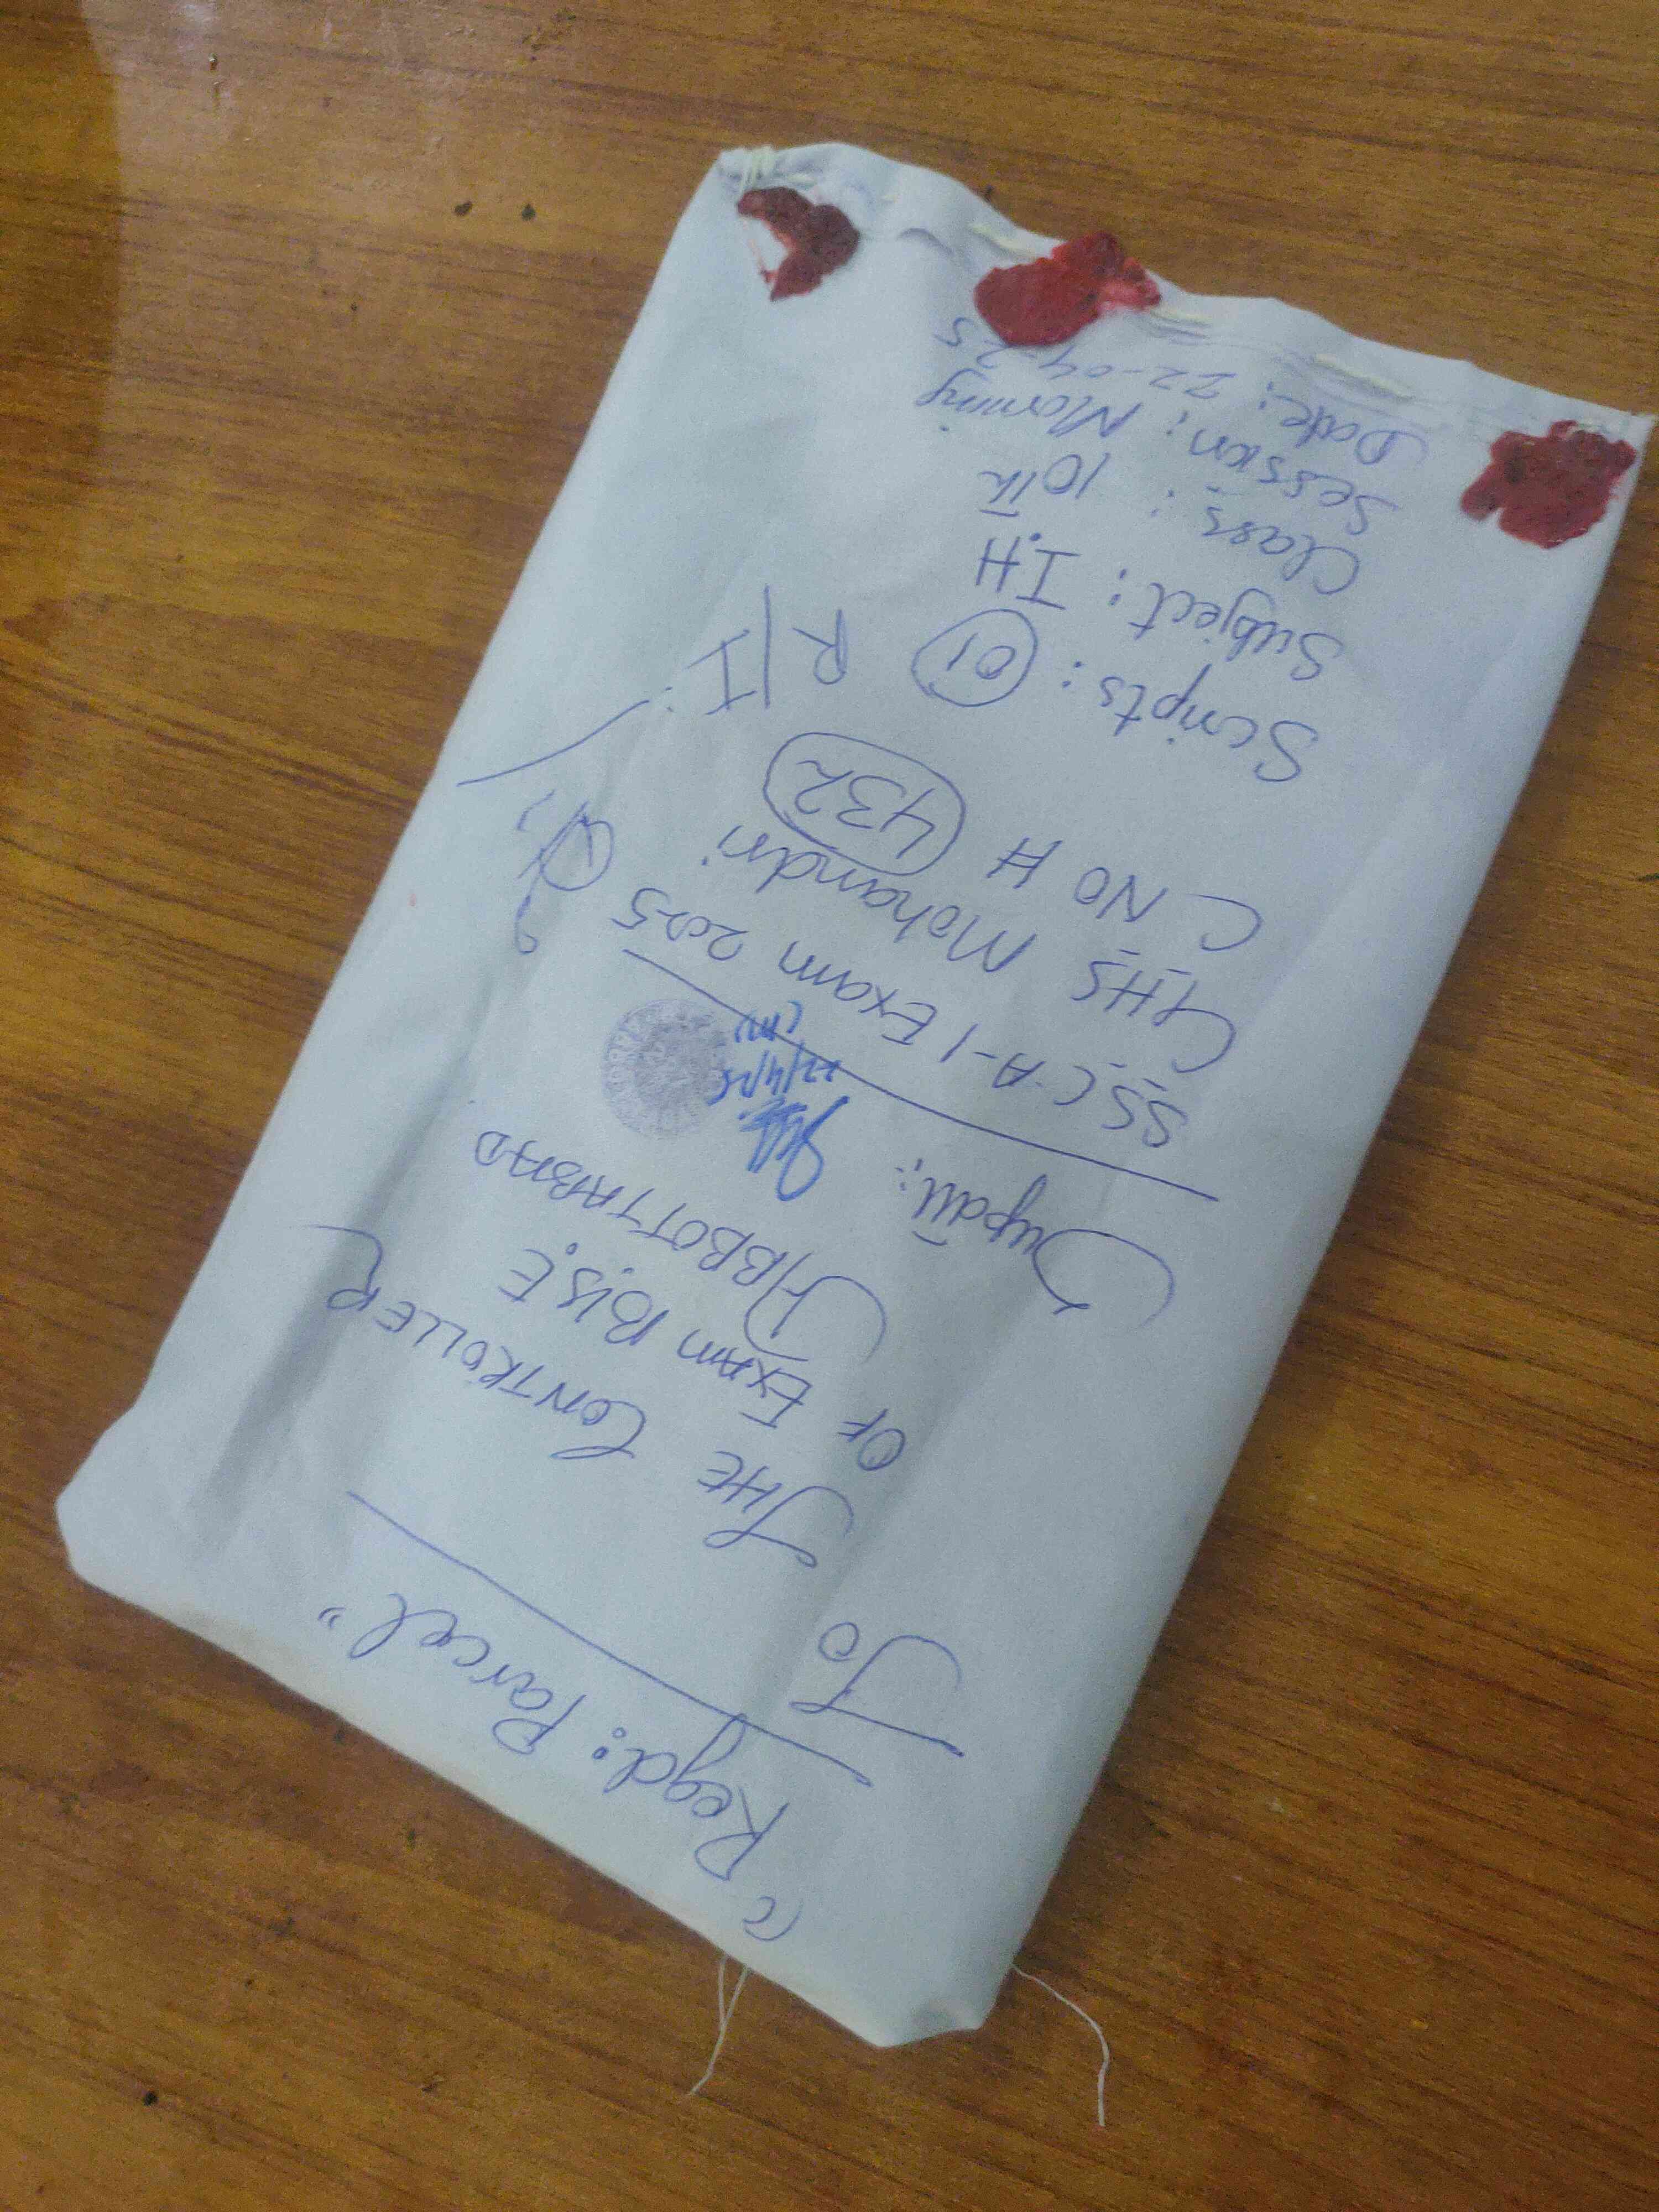 "Regd: Parcel"
To
THE CONTROLLER
OF EXAM B.I.S.E
ABBOTTABAD
Supdtt:
22/4/25
SSC-A-1 Exam 2025
GHS Mohandri
C NO # 432
Scripts: 01 R/I
Subject: I.H
Class: 10th
Session: Morning
Date: 22-04-25